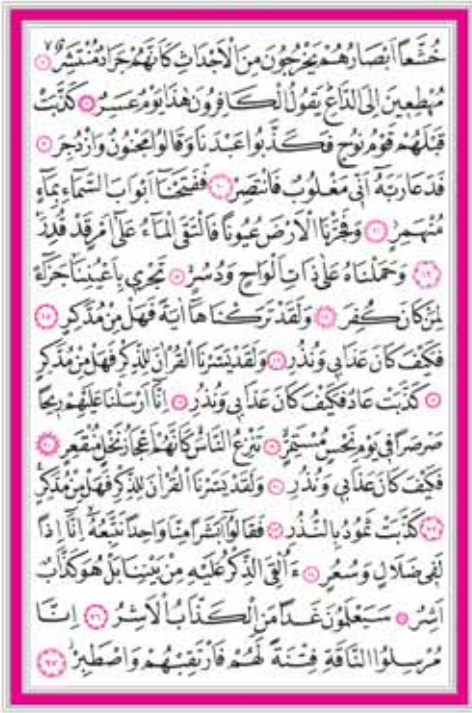 خُشَّعاً اَبْصَارُهُمْ يَخْرُجُونَ مِنَ الْاَجْدَاثِ كَاَنَّهُمْ جَرَادٌ مُنْتَشِرٌ
مُهْطِعِينَ اِلَى الدَّاعِ يَقُولُ الْكَافِرُونَ هٰذَا يَوْمٌ عَسِرٌ كَذَّبَتْ
قَبْلَهُمْ قَوْمُ نُوحٍ فَكَذَّبُوا عَبْدَنَا وَقَالُوا مَجْنُونٌ وَازْدُجِرَ
فَدَعَا رَبَّهُٓ اَنّ۪ي مَغْلُوبٌ فَانْتَصِرْ فَفَتَحْنَٓا اَبْوَابَ السَّمَٓاءِ بِمَٓاءٍ
مُنْهَمِرٍ وَفَجَّرْنَا الْاَرْضَ عُيُوناً فَالْتَقَى الْمَٓاءُ عَلٰٓى اَمْرٍ قَدْ قُدِرَ
وَحَمَلْنَاهُ عَلٰى ذَاتِ اَلْوَاحٍ وَدُسُرٍ تَجْر۪ي بِاَعْيُنِنَا جَزَٓاءً
لِمَنْ كَانَ كُفِرَ وَلَقَدْ تَرَكْنَاهَٓا اٰيَةً فَهَلْ مِنْ مُدَّكِرٍ
فَكَيْفَ كَانَ عَذَاب۪ي وَنُذُرِ وَلَقَدْ يَسَّرْنَا الْقُرْاٰنَ لِلذِّكْرِ فَهَلْ مِنْ مُدَّكِرٍ
كَذَّبَتْ عَادٌ فَكَيْفَ كَانَ عَذَاب۪ي وَنُذُرِ اِنَّٓا اَرْسَلْنَا عَلَيْهِمْ ر۪يحاً
صَرْصَراً ف۪ي يَوْمِ نَحْسٍ مُسْتَمِرٍّ تَنْزِعُ النَّاسَ كَاَنَّهُمْ اَعْجَازُ نَخْلٍ مُنْقَعِرٍ
فَكَيْفَ كَانَ عَذَاب۪ي وَنُذُرِ وَلَقَدْ يَسَّرْنَا الْقُرْاٰنَ لِلذِّكْرِ فَهَلْ مِنْ مُدَّكِرٍ
كَذَّبَتْ ثَمُودُ بِالنُّذُرِ فَقَالُٓوا اَبَشَراً مِنَّا وَاحِداً نَتَّبِعُهُٓ اِنَّٓا اِذاً
لَف۪ي ضَلَالٍ وَسُعُرٍ ءَاُلْقِيَ الذِّكْرُ عَلَيْهِ مِنْ بَيْنِنَا بَلْ هُوَ كَذَّابٌ
اَشِرٌ سَيَعْلَمُونَ غَداً مَنِ الْكَذَّابُ الْاَشِرُ اِنَّا
مُرْسِلُوا النَّاقَةِ فِتْنَةً لَهُمْ فَارْتَقِبْهُمْ وَاصْطَبِرْ